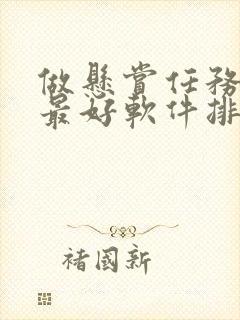 做懸賞任務
最好軟件排
褚國新